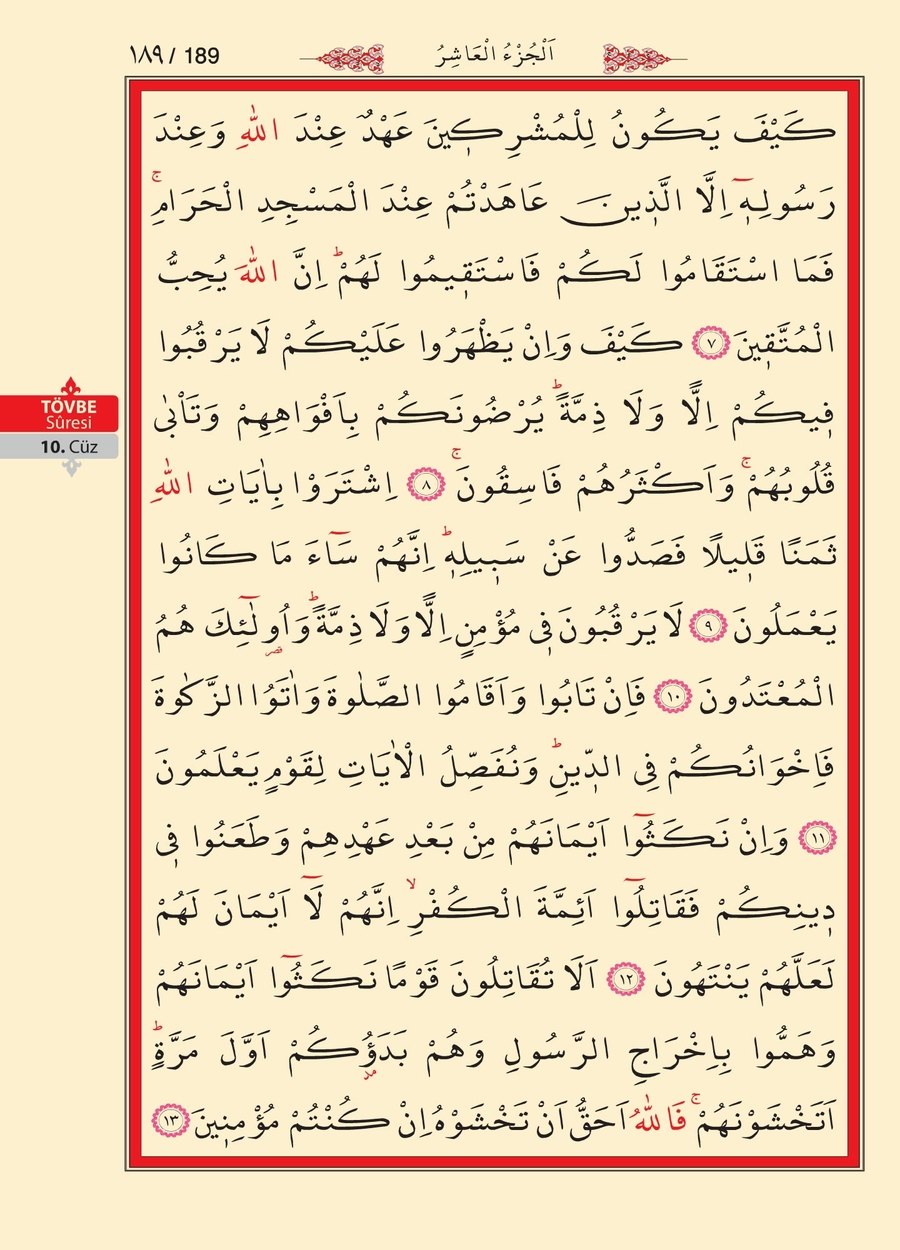 ١٨٩ / 189
اَلْجُزْءُ الْعَاشِرُ
كَيْفَ يَكُونُ لِلْمُشْرِكٖينَ عَهْدٌ عِنْدَ اللّٰهِ وَعِنْدَ
رَسُولِهٖٓ اِلَّا الَّذٖينَ عَاهَدْتُمْ عِنْدَ الْمَسْجِدِ الْحَرَامِۚ
فَمَا اسْتَقَامُوا لَكُمْ فَاسْتَقٖيمُوا لَهُمْؕ اِنَّ اللّٰهَ يُحِبُّ
الْمُتَّقٖينَ ﴿٧﴾ كَيْفَ وَاِنْ يَظْهَرُوا عَلَيْكُمْ لَا يَرْقُبُوا
فٖيكُمْ اِلًّا وَلَا ذِمَّةًؕ يُرْضُونَكُمْ بِاَفْوَاهِهِمْ وَتَاْبٰى
قُلُوبُهُمْۚ وَاَكْثَرُهُمْ فَاسِقُونَۚ ﴿٨﴾ اِشْتَرَوْا بِاٰيَاتِ اللّٰهِ
ثَمَنًا قَلٖيلًا فَصَدُّوا عَنْ سَبٖيلِهٖؕ اِنَّهُمْ سَٓاءَ مَا كَانُوا
يَعْمَلُونَ ﴿٩﴾ لَا يَرْقُبُونَ فٖى مُؤْمِنٍ اِلًّا وَلَا ذِمَّةًؕ وَاُو۬لٰٓئِكَ هُمُ
قصر
الْمُعْتَدُونَ ﴿١٠﴾ فَاِنْ تَابُوا وَاَقَامُوا الصَّلٰوةَ وَاٰتَوُا الزَّكٰوةَ
فَاِخْوَانُكُمْ فِى الدّٖينِؕ وَنُفَصِّلُ الْاٰيَاتِ لِقَوْمٍ يَعْلَمُونَ
﴿١١﴾ وَاِنْ نَكَثُٓوا اَيْمَانَهُمْ مِنْ بَعْدِ عَهْدِهِمْ وَطَعَنُوا فٖى
دٖينِكُمْ فَقَاتِلُٓوا اَئِمَّةَ الْكُفْرِۙ اِنَّهُمْ لَٓا اَيْمَانَ لَهُمْ
لَعَلَّهُمْ يَنْتَهُونَ ﴿١٢﴾ اَلَا تُقَاتِلُونَ قَوْمًا نَكَثُٓوا اَيْمَانَهُمْ
وَهَمُّوا بِاِخْرَاجِ الرَّسُولِ وَهُمْ بَدَؤُ۫كُمْ اَوَّلَ مَرَّةٍؕ
مد
اَتَخْشَوْنَهُمْۚ فَاللّٰهُ اَحَقُّ اَنْ تَخْشَوْهُ اِنْ كُنْتُمْ مُؤْمِنٖينَ ﴿١٣﴾
TÖVBE
Sûresi
10. Cüz